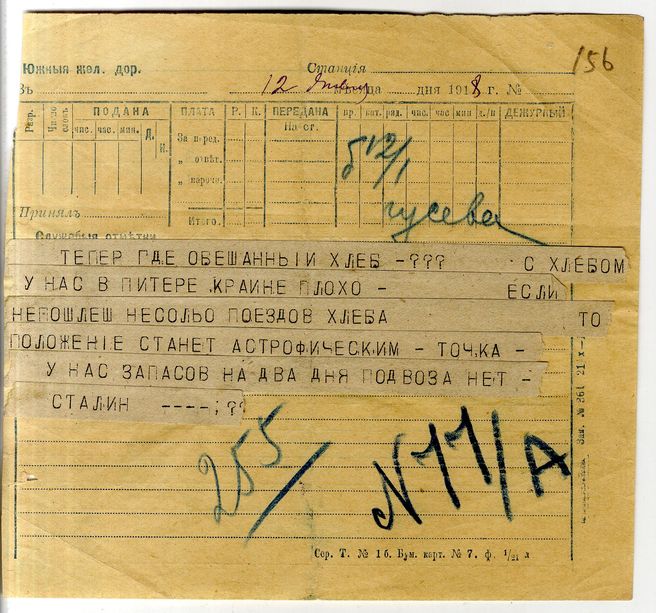 156
Южныя жел. дор. Станція
Въ 12 мѣсяца дня 1918 г. №
ПОДАНА ПЛАТА Р. К. ПЕРЕДАНА ДЕЖУРНЫЙ
Разр. Число словъ чис. час. мин. За перед. На ст. пр. кат. ряд. чис. час. мин.
„ отвѣт.
„ нароч.
Итого.
12/1
гусева
Принялъ
Служебныя отмѣтки
ТЕПЕР ГДЕ ОБЕШАННЫИ ХЛЕБ -??? С ХЛЕБОМ
У НАС В ПИТЕРЕ КРАИНЕ ПЛОХО - ЕСЛИ
НЕПОШЛЕШ НЕСОЛЬО ПОЕЗДОВ ХЛЕБА ТО
ПОЛОЖЕНІЕ СТАНЕТ АСТРОФИЧЕСКИМ - ТОЧКА -
У НАС ЗАПАСОВ НА ДВА ДНЯ ПОДВОЗА НЕТ -
СТАЛИН ----;??
255
N 77/А
Сер. Т. № 16. Бум. карт. № 7. ф. 1/21 д